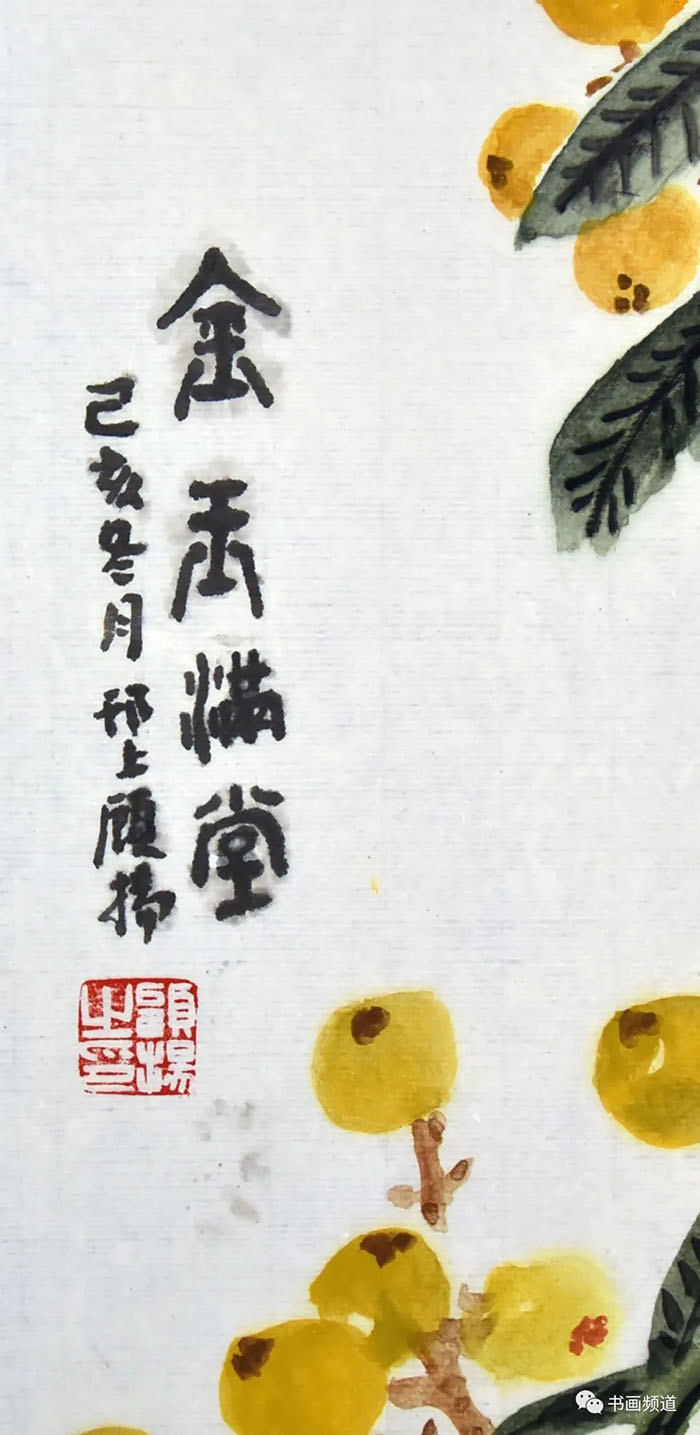 金玉满堂
己亥冬月邗上顾扬
顾扬之印
书画频道